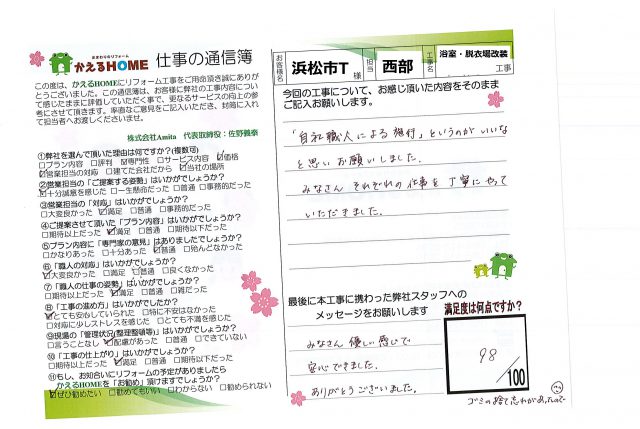 水まわりのリフォーム
かえるHOME 仕事の通信簿
この度は、かえるHOMEにリフォーム工事をご用命頂き誠にありが
とうございました。この通信簿は、お客様に弊社の工事内容につい
て感じたままに評価していただく事で、更なるサービスの向上の参
考にさせて頂きます。率直なご意見をご記入いただき、封筒に入れ
て担当者へお渡しくださいませ。
株式会社Amita 代表取締役:佐野雅泰
①弊社を選んで頂いた理由は何ですか?(複数可)
□プラン内容 □評判 ☑専門性 □サービス内容 ☑価格
☑営業担当の対応 □建てた会社だから ☑当社の場所
②営業担当の「ご提案する姿勢」はいかがでしょうか?
☑十分誠意を感じた □一生懸命だった □普通 □事務的だった
③営業担当の「対応」はいかがでしょうか?
□大変良かった ☑満足 □普通 □事務的だった
④ご提案させて頂いた「プラン内容」はいかがでしょうか?
□期待以上だった ☑満足 □普通 □期待以下だった
⑤プラン内容に「専門家の意見」はありましたでしょうか?
□かなりあった □十分あった ☑普通 □殆んどなかった
⑥「職人の対応」はいかがでしょうか?
☑大変良かった □満足 □普通 □良くなかった
⑦「職人の仕事の姿勢」はいかがでしょうか?
□期待以上だった ☑満足 □普通 □雑だった
⑧「工事の進め方」はいかがでしたか?
☑とても安心していられた □特に不安はなかった
□対応に少しストレスを感じた □とても不満を感じた
⑨現場の「管理状況(整理整頓等)」はいかがでしょうか?
□言うことなし ☑配慮があった □普通 □できていない
⑩「工事の仕上がり」はいかがでしょうか?
□期待以上だった ☑満足 □普通 □期待以下だった
⑪もし、お知合いにリフォームの予定がありましたら
かえるHOMEを「お勧め」頂けますでしょうか?
☑ぜひ勧めたい □勧めてもいい □わからない □勧められない
お客様名 浜松市T 様 担当 西部 工事名 浴室・脱衣場改装 工事
今回の工事について、お感じ頂いた内容をそのまま
ご記入お願いします。
「自社職人による施行」というのがいいな
と思いお願いしました。
みなさん それぞれの仕事を丁寧にやって
いただきました。
最後に本工事に携わった弊社スタッフへの
メッセージをお願いします
みなさん 優しい感じで
安心できました。
ありがとうございました。
満足度は何点ですか?
98
/100
ゴミの捨て忘れがあったので